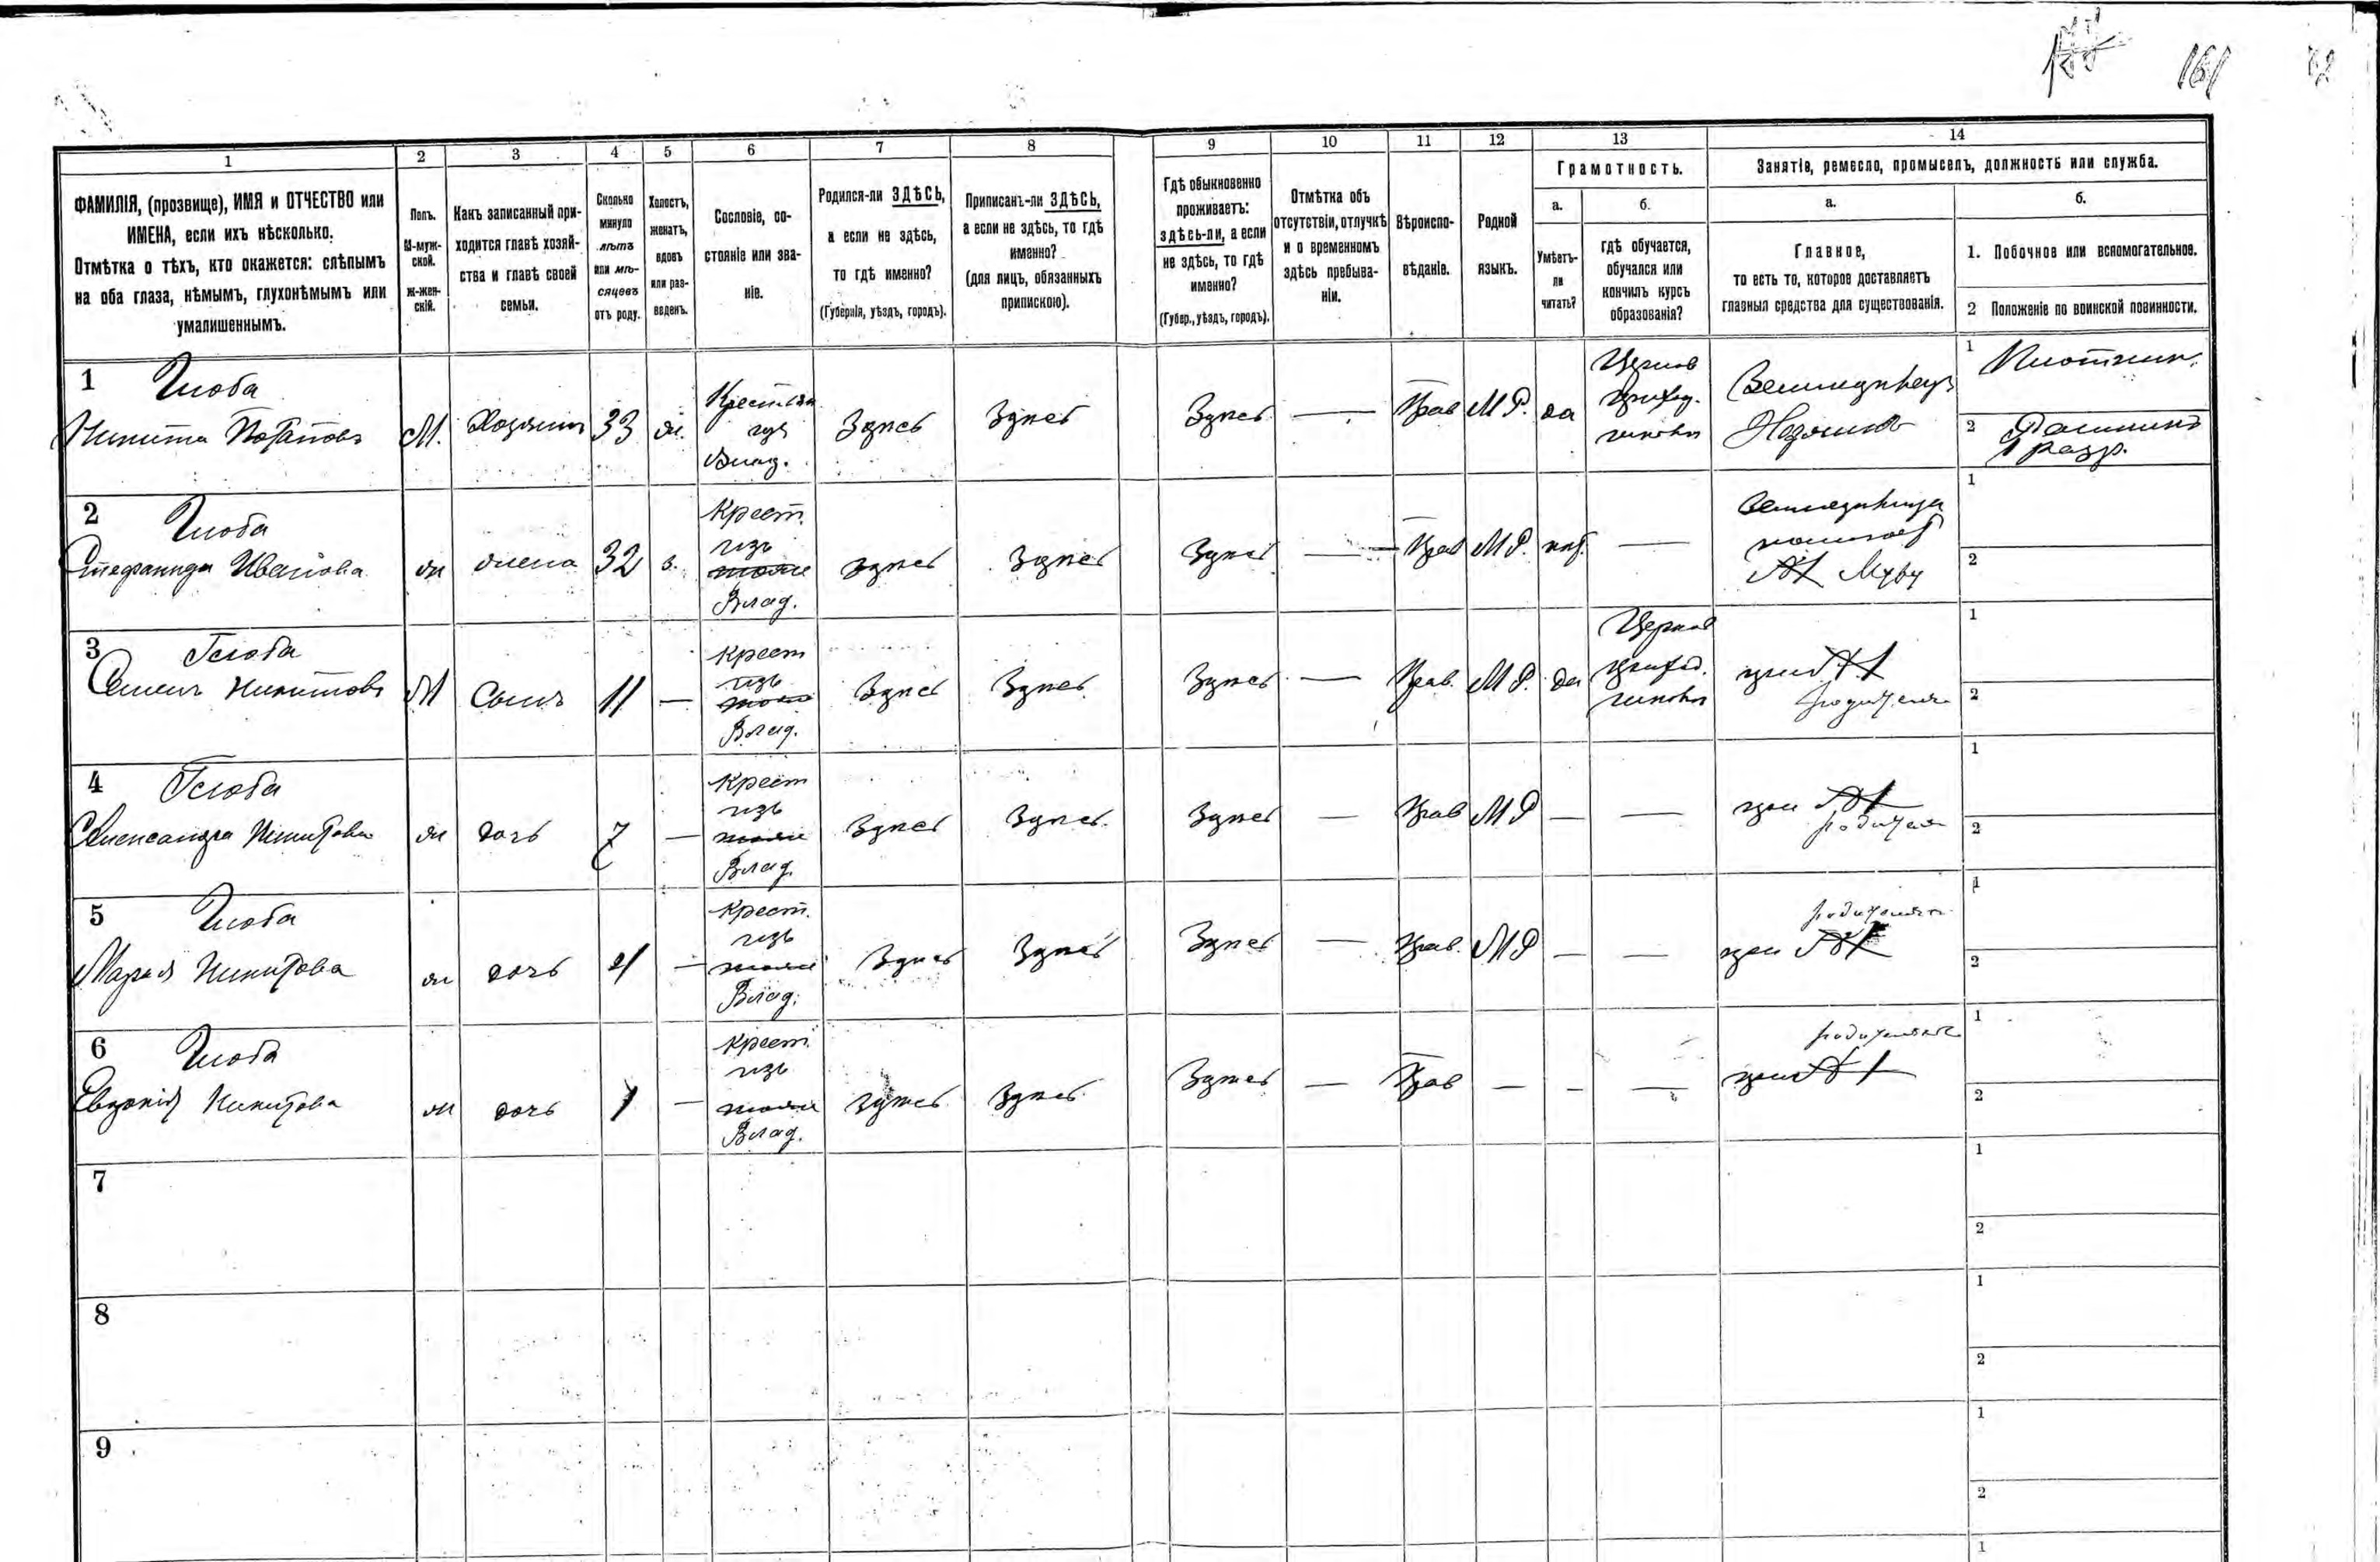 161
1
2
3
4
5
6
7
8
9
10
11
12
13
14
ФАМИЛІЯ, (прозвище), ИМЯ и ОТЧЕСТВО или
ИМЕНА, если ихъ нѣсколько.
Отмѣтка о тѣхъ, кто окажется: слѣпымъ
на оба глаза, нѣмымъ, глухонѣмымъ или
умалишеннымъ.
Полъ.
М-муж-
ской.
Ж-жен-
скій.
Какъ записанный при-
ходится главѣ хозяй-
ства и главѣ своей
семьи.
Сколько
минуло
лѣтъ
или мѣ-
сяцевъ
отъ роду.
Холостъ,
женатъ,
вдовъ
или раз-
веденъ.
Сословіе, со-
стояніе или зва-
ніе.
Родился-ли ЗДѢСЬ,
а если не здѣсь,
то гдѣ именно?
(Губернія, уѣздъ, городъ).
Приписанъ-ли ЗДѢСЬ,
а если не здѣсь, то гдѣ
именно?
(для лицъ, обязанныхъ
припискою).
Гдѣ обыкновенно
проживаетъ:
здѣсь-ли, а если
не здѣсь, то гдѣ
именно?
(Губер., уѣздъ, городъ).
Отмѣтка объ
отсутствіи, отлучкѣ
и о временномъ
здѣсь пребыва-
ніи.
Вѣроиспо-
вѣданіе.
Родной
языкъ.
Грамотность.
а.
Умѣетъ-
ли
читать?
б.
гдѣ обучается,
обучался или
кончилъ курсъ
образованія?
Занятіе, ремесло, промыселъ, должность или служба.
а.
Главное,
то есть то, которое доставляетъ
главныя средства для существованія.
б.
1. Побочное или вспомогательное.
2 Положеніе по воинской повинности.
1 Глоба
Никита Потаповъ
М.
Хозяинъ
33
ж.
Крестьян
изъ
Влад.
Здѣсь
Здѣсь
Здѣсь
—
Прав
М Р.
да
Церков
Приход.
школѣ
Земледѣлецъ
Хозяинъ
1 Плотник.
2
1 разр.
2 Глоба
Степанида Иванова
ж
жена
32
з.
Крест.
изъ
Влад.
здѣсь
здѣсь
Здѣсь
—
Прав
М Р.
нѣт.
—
Земледѣлица
1
2
3 Глоба
Семенъ Никитовъ
М
Сынъ
11
—
Крест
изъ
Влад.
Здѣсь
Здѣсь
Здѣсь
—
Прав.
М Р.
да
Церков
приход.
школѣ
при
родителях
1
2
4 Глоба
Александра Никитова
ж
дочь
7
—
Крест
изъ
Влад.
Здѣсь
Здѣсь
Здѣсь
—
Прав
М Р
—
—
при
родителях
1
2
5 Глоба
Марья Никитова
ж
дочь
4
—
Крест.
изъ
Влад.
Здѣсь
Здѣсь
Здѣсь
—
Прав.
М Р
—
—
родителях
при
1
2
6 Глоба
Евдокія Никитова
ж
дочь
1
—
Крест.
изъ
Влад.
Здѣсь
Здѣсь
Здѣсь
—
Прав
—
—
—
родителях
при
1
2
7
1
2
8
1
2
9
1
2
1